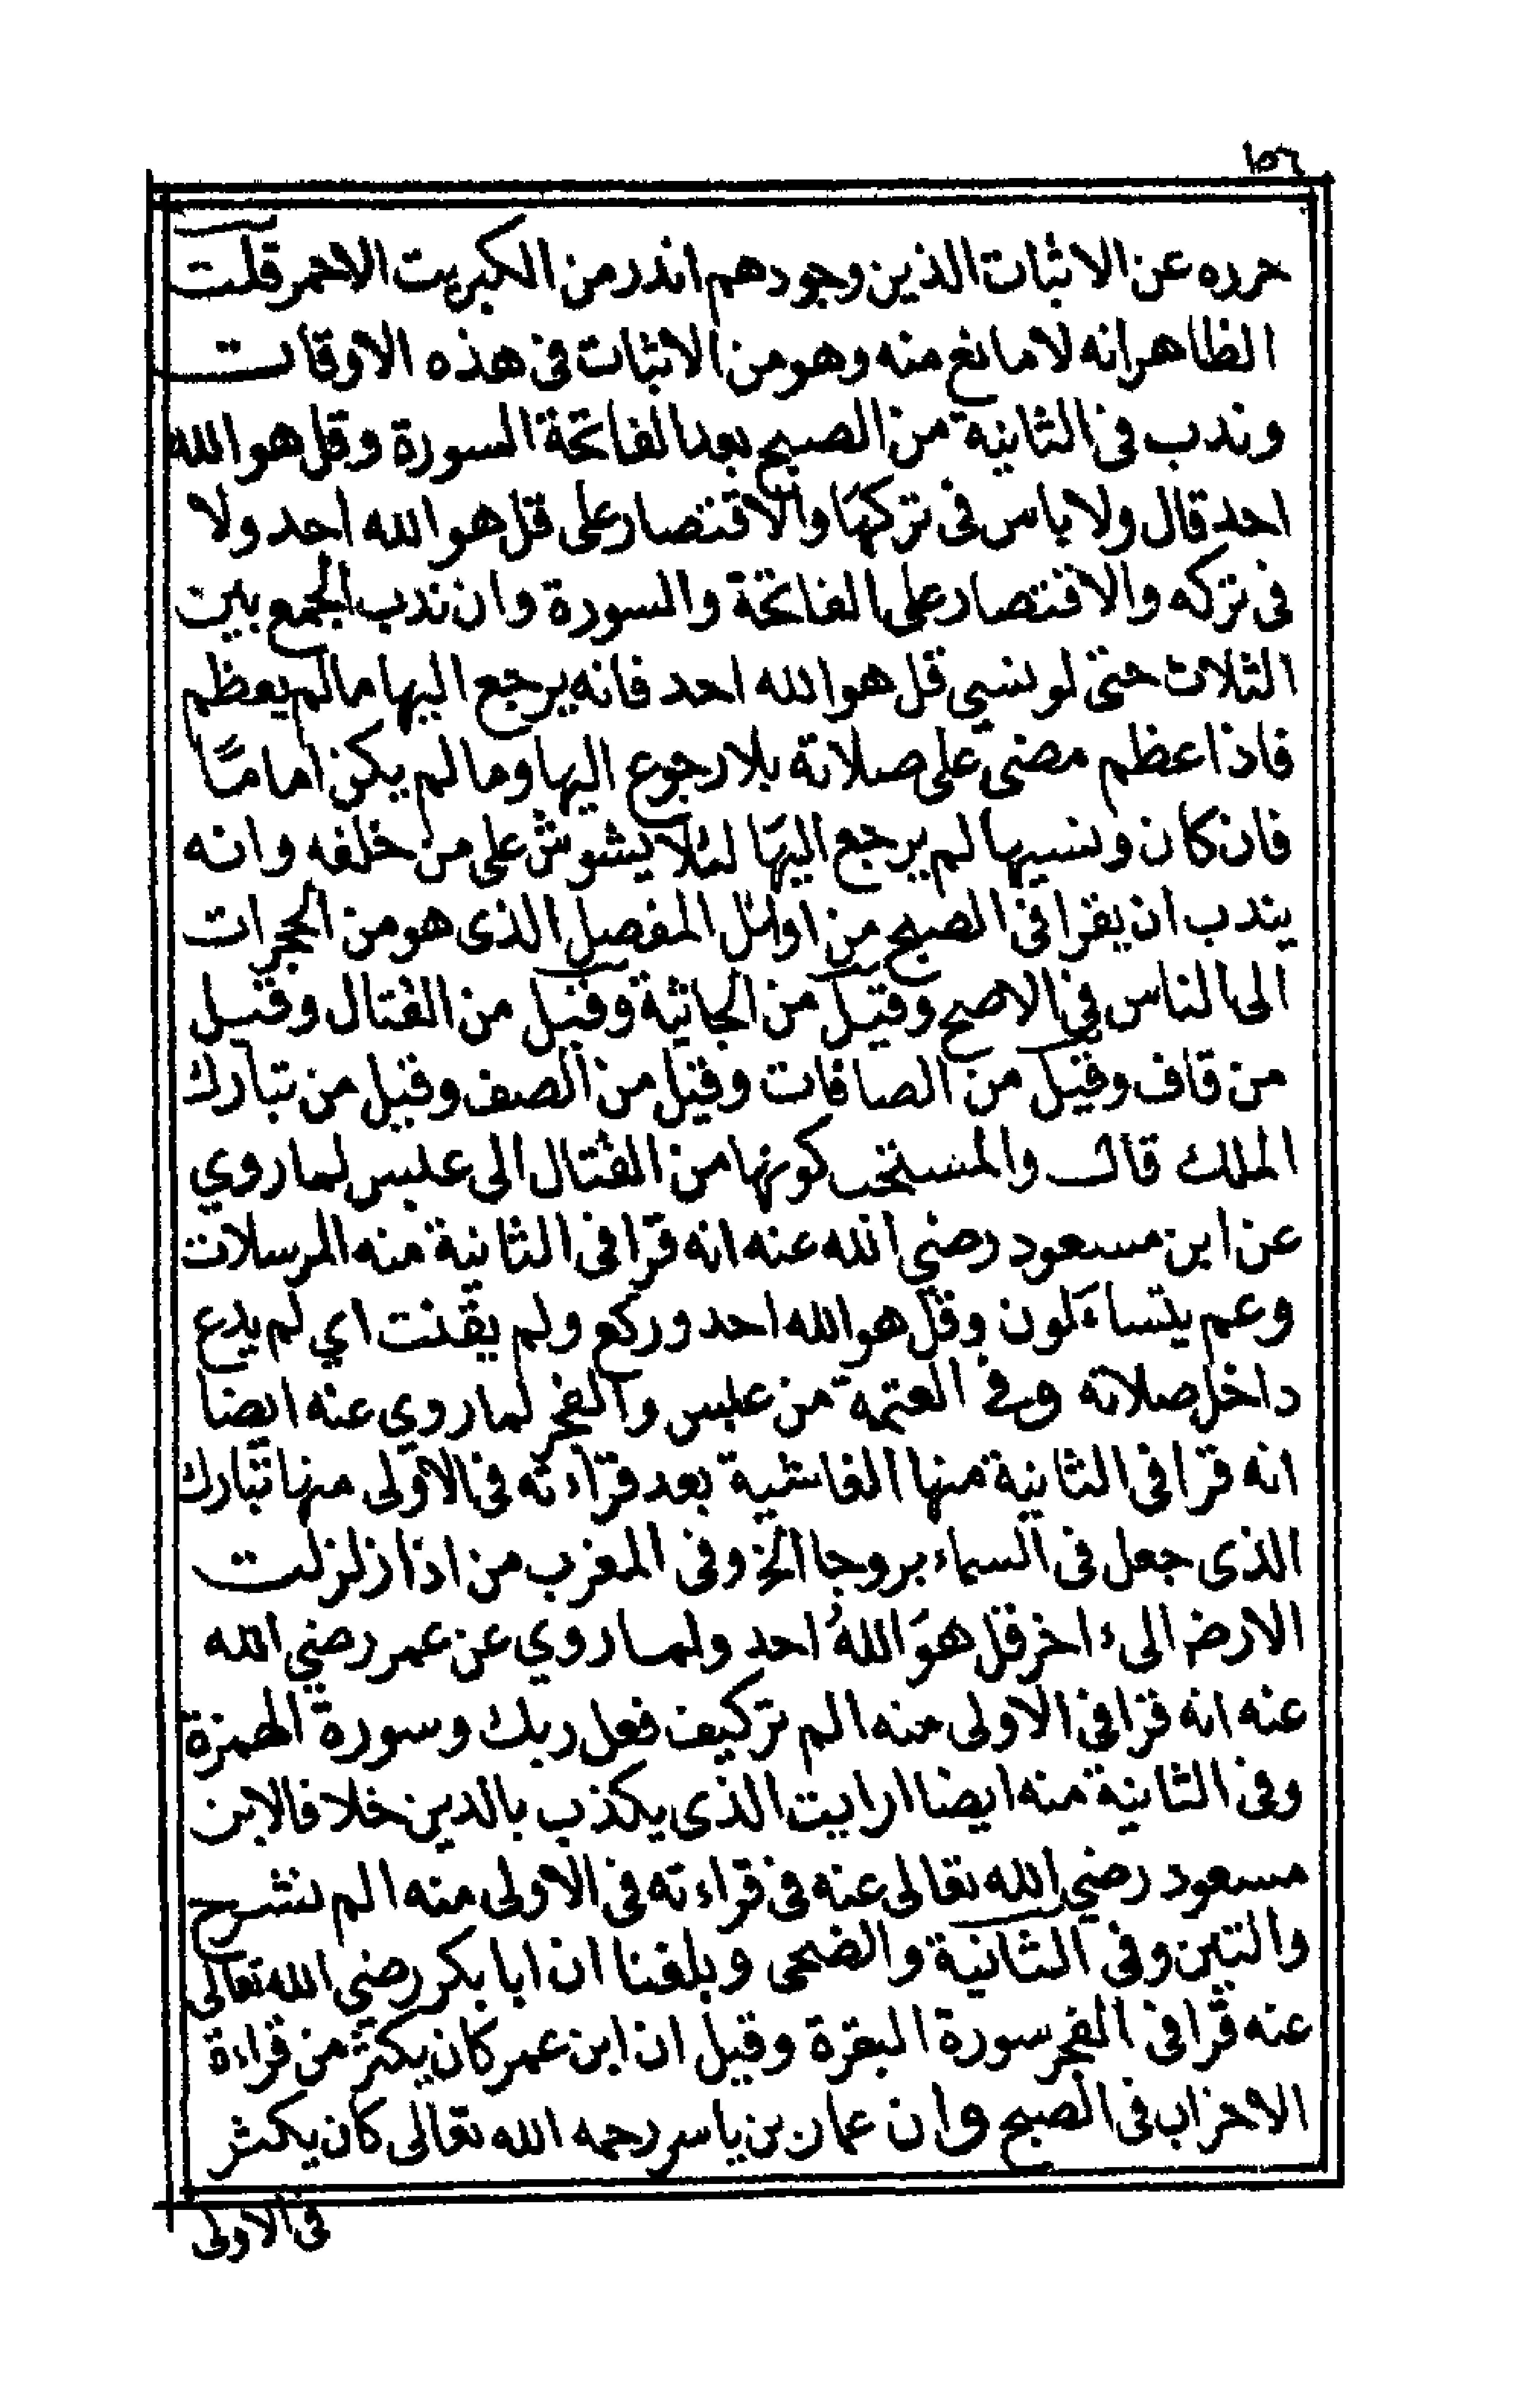 ١٥٦
حرره عن الاثبات الذين وجودهم اندر من الكبريت الاحمر قلت
الظاهر انه لا مانع منه وهو من الاثبات فى هذه الاوقات
وندب فى الثانية من الصبح بعد الفاتحة السورة وقل هو الله
احد قال ولا باس فى تركها والاقتصار على قل هو الله احد ولا
فى تركه والاقتصار على الفاتحة والسورة وان ندب الجمع بين
الثلاث حتى لو نسي قل هو الله احد فانه يرجع اليها ما لم يعظم
فاذا عظم مضى على صلاته بلا رجوع اليها وما لم يكن امامًا
فان كان ونسيها لم يرجع اليهَا لئلا يشوش على من خلفه وانه
يندب ان يقرا فى الصبح من اوائل المفصل الذى هو من الحجرات
الى الناس فى الاصح وقيل من الجاثية وقيل من القتال وقيل
من قاف وقيل من الصافات وقيل من الصف وقيل من تبارك
الملك قال والمستحب كونها من القتال الى عبس لما روي
عن ابن مسعود رضي الله عنه انه قرا فى الثانية منه المرسلات
وعم يتساءَلون وقل هو الله احد وركع ولم يقنت اي لم يدع
داخل صلاته وفى العتمة من عبس والفجر لما روي عنه ايضا
انه قرا فى الثانية منها الغاشية بعد قراءته فى الاولى منها تبارك
الذى جعل فى السماء بروجا الخ وفى المغرب من اذا زلزلت
الارض الىء اخر قل هوَ اللهُ احد ولما روي عن عمر رضي الله
عنه انه قرا فى الاولى منه الم تر كيف فعل ربك وسورة الهمزة
وفى الثانية منه ايضا ارايت الذى يكذب بالدين خلافا لابن
مسعود رضي الله تعالى عنه فى قراءته فى الاولى منه الم نشرح
والتين وفى الثانية والضحى وبلغنا ان ابا بكر رضي الله تعالى
عنه قرا فى الفجر سورة البقرة وقيل ان ابن عمر كان يكثر من قراءة
الاحزاب فى الصبح وان عمار بن ياسر رحمه الله تعالى كان يكثر
فى الاولى